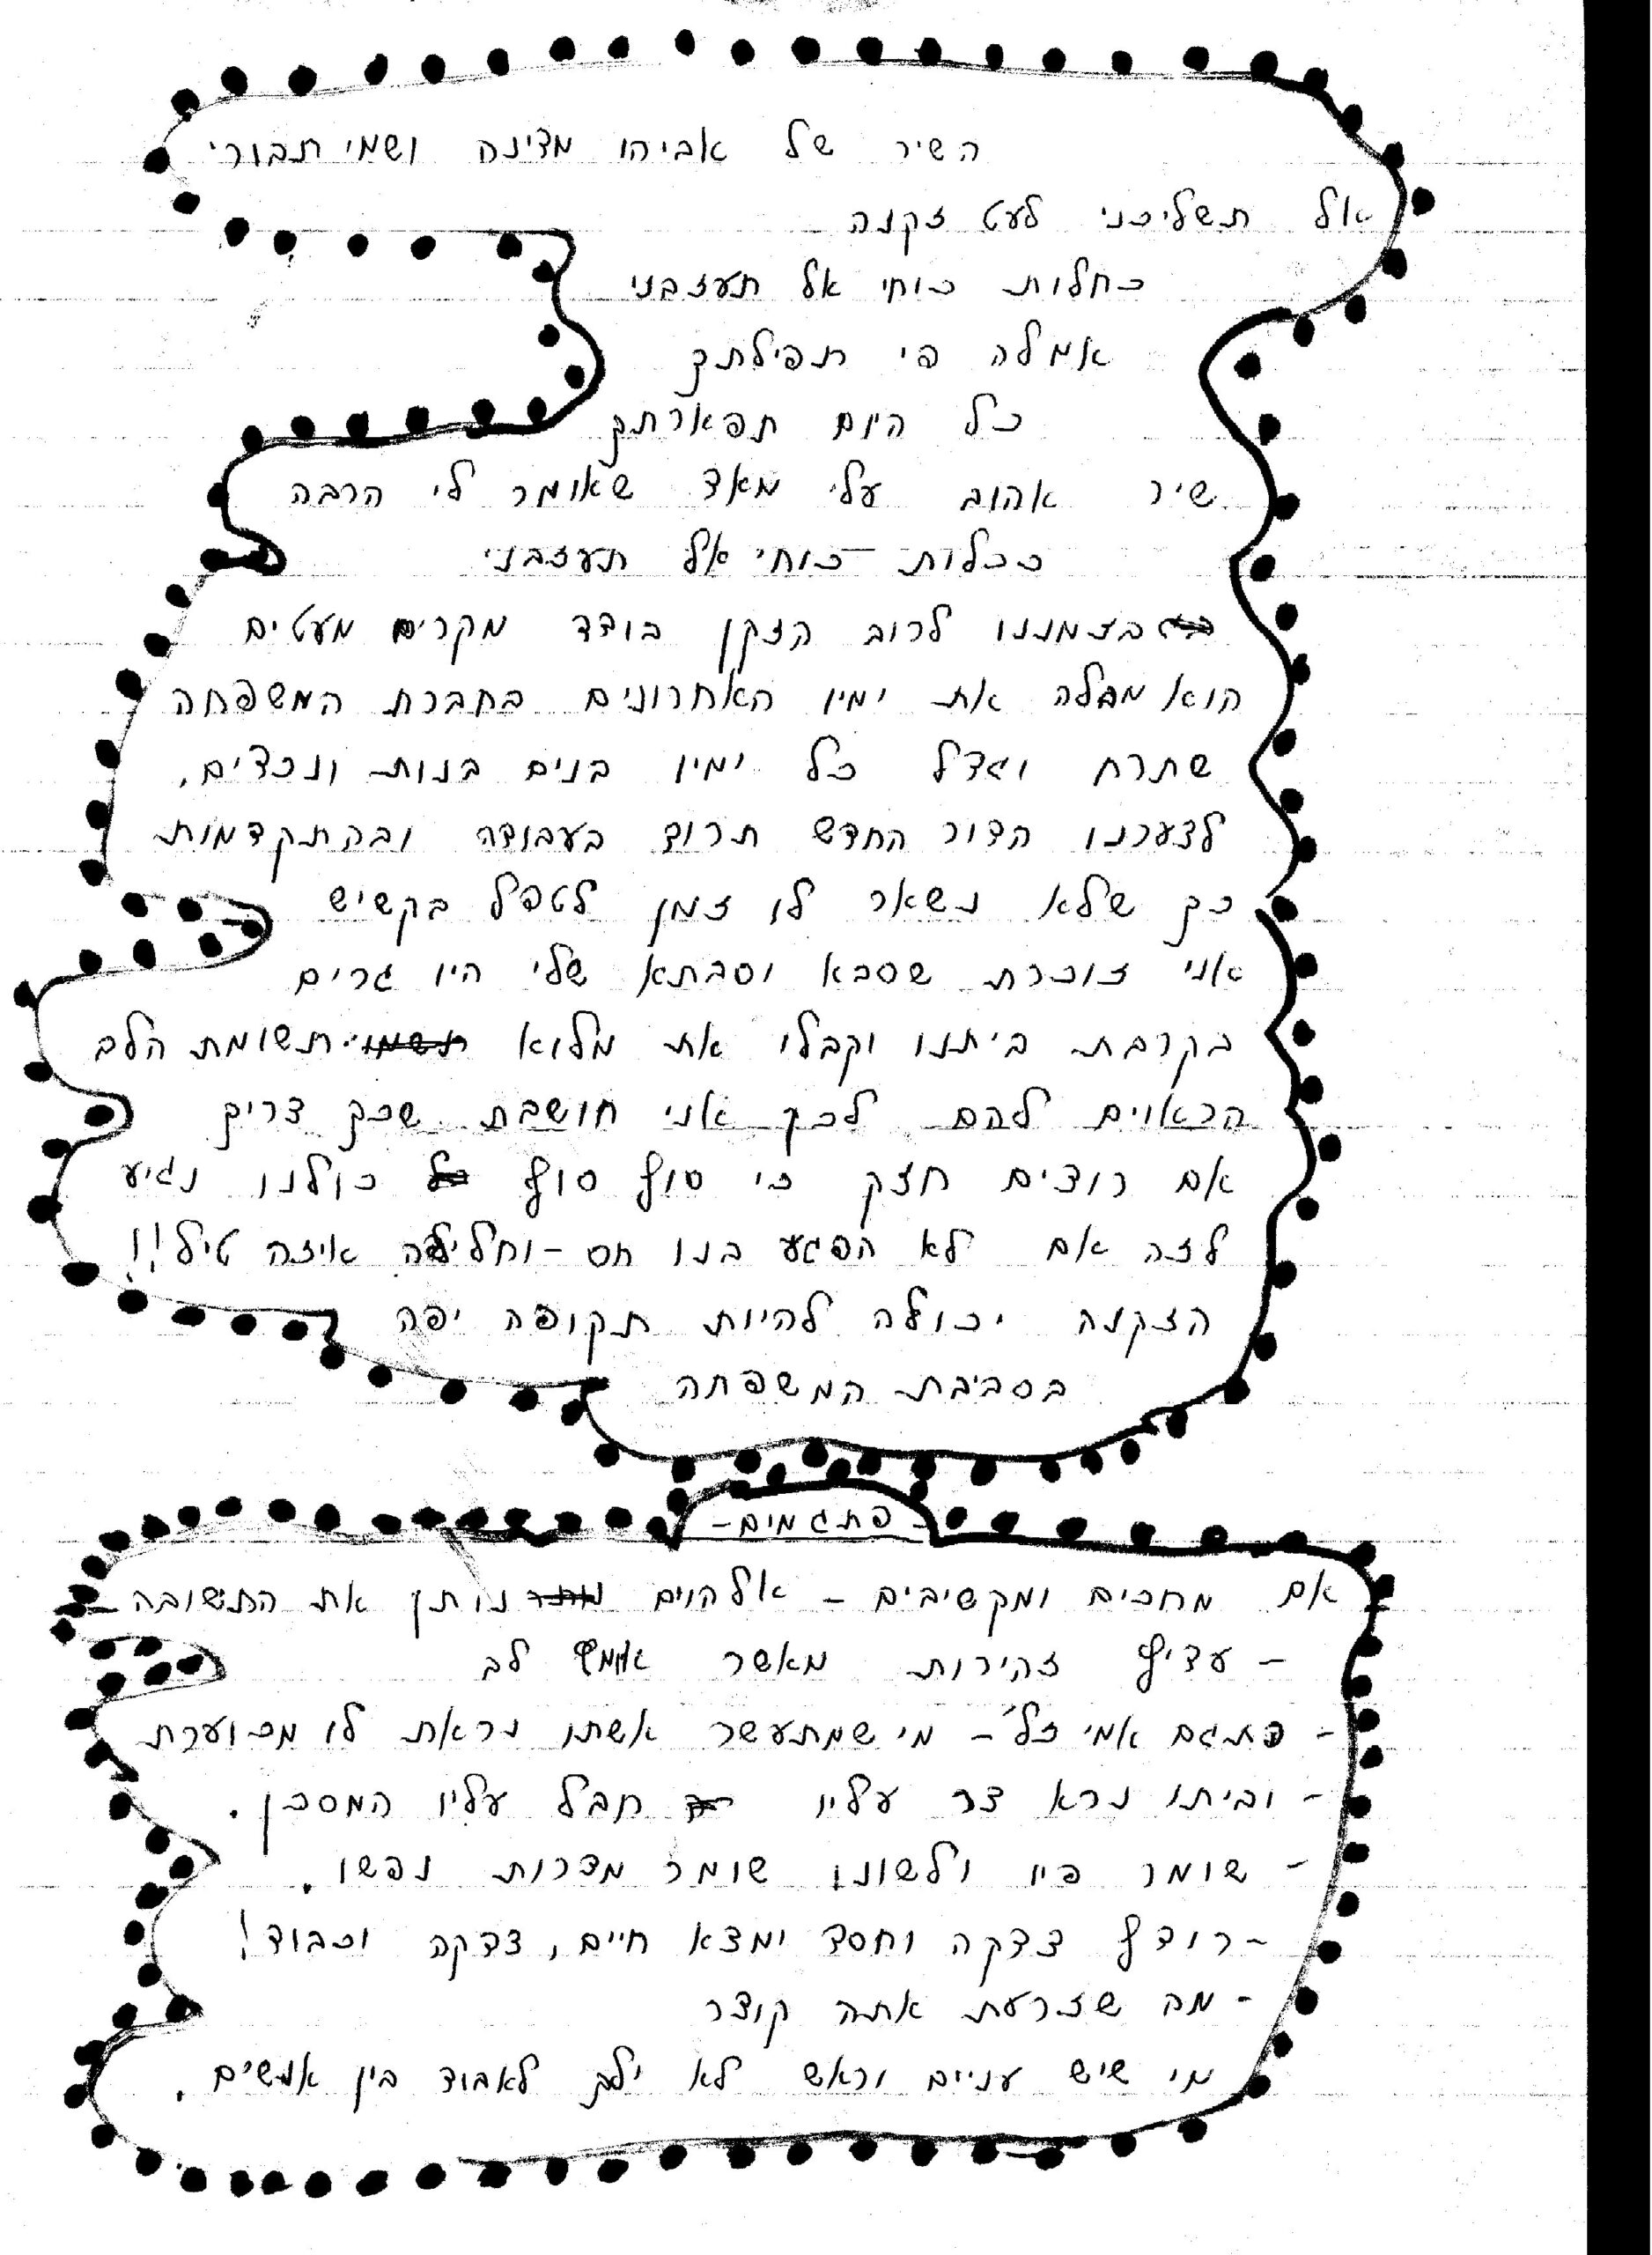 השיר של אביהו מדינה ושמי תבורי
אל תשליכני לעט זקנה
כחלות כוחי אל תעזבני
אמלה פי תפילתך
כל היום תפארתך
שיר אהוב עלי מאד שאומר לי הרבה
ככלות כוחי אל תעזבני
בזמננו לרוב הזקן בודד מקרים מעטים
הוא מבלה את ימיו האחרונים בחברת המשפחה
שתרח וגדל כל ימיו בנים בנות ונכדים,
לצערנו הדור החדש תרוד בעבודה ובהתקדמות
כך שלא נשאר לו זמן לטפל בקשיש
אני זוכרת שסבא וסבתא שלי היו גרים
בקרבת ביתנו וקבלו את מלוא תשומת הלב
הראוים להם לכך אני חושבת שכך צריך
אם רוצים חזק כי סוף סוף כולנו נגיע
לזה אם לא הפגע בנו חס-וחלילה איזה טיל!!
הזקנה יכולה להיות תקופה יפה
בסביבת המשפחה
-פתגמים-
אם מחכים ומקשיבים - אלהוים נותן את התשובה -
- עדיף זהירות מאשר אומץ לב
- פתגם אמי זל" - מי שמתעשר אשתו נראת לו מכוערת
- וביתו נרא צר עליו חבל עליו המסכן.
- שומר פיו ולשונו שומר מצרות נפשו.
- רודף צדקה וחסד ימצא חיים, צדקה וכבוד!
- מה שזרעת אתה קוצר
מי שיש עניים וראש לא ילך לאבוד בין אנשים.